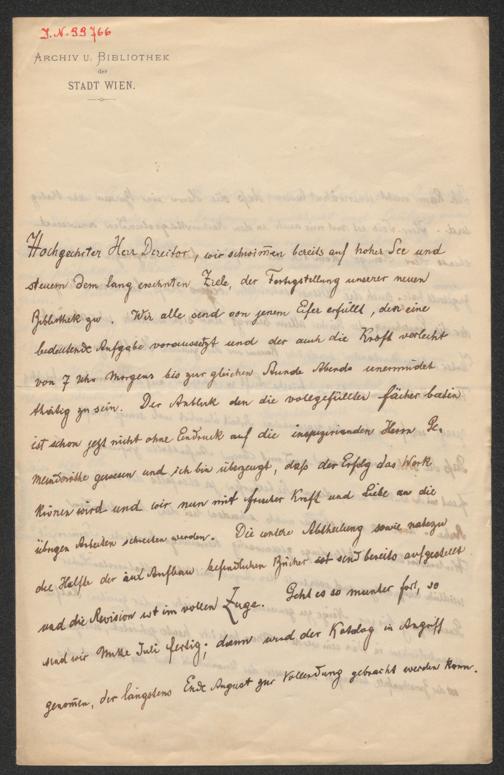 J. N. 99766
ARCHIV U. BIBLIOTHEK
der
STADT WIEN.
Hochgeehrter Herr Direitor, wir schwim̅en bereits auf hoher See und
steuern dem lang ersehnten Ziele, der Fertigstellung unserer neuen
Bibliothek zu. Wir alle sind von jenem Eifer erfüllt, den eine
bedeutende Aufgabe voraussetzt und der auch die Kraft verleiht
von 7 Uhr Morgens bis zur gleichen Stunde Abends unermüdet
thätig zu sein. Der Anblick den die vollgefüllten Fächer baten
ist schon jezt nicht ohne Eindruck auf die inspizirenden Herrn Ge-
meinderäthe gewesen und ich bin überzeugt, daß der Erfolg das Werk
krönen wird und wir nun mit frischer Kraft und Liebe an die
übrigen Arbeiten schreiten werden. Die Abtheilung sowie nahezu
die Hälfte der im Aufbau befindlichen Bücher sind bereits aufgestellt
und die Revision ist im vollen Zuge. Geht es so munter fort, so
sind wir Mitte Juli fertig; dann wird der Katalog in Angriff
genom̅en, der längstens Ende August zur Vollendung gebracht werden kann.